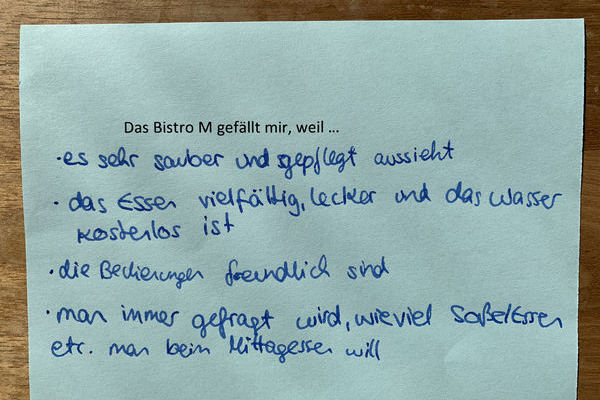 Das Bistro M gefällt mir, weil ...
• es sehr sauber und gepflegt aussieht
• das Essen vielfältig, lecker und das Wasser
kostenlos ist
• die Bedienungen freundlich sind
• man immer gefragt wird, wieviel Soße/Essen
etc. man beim Mittagessen will